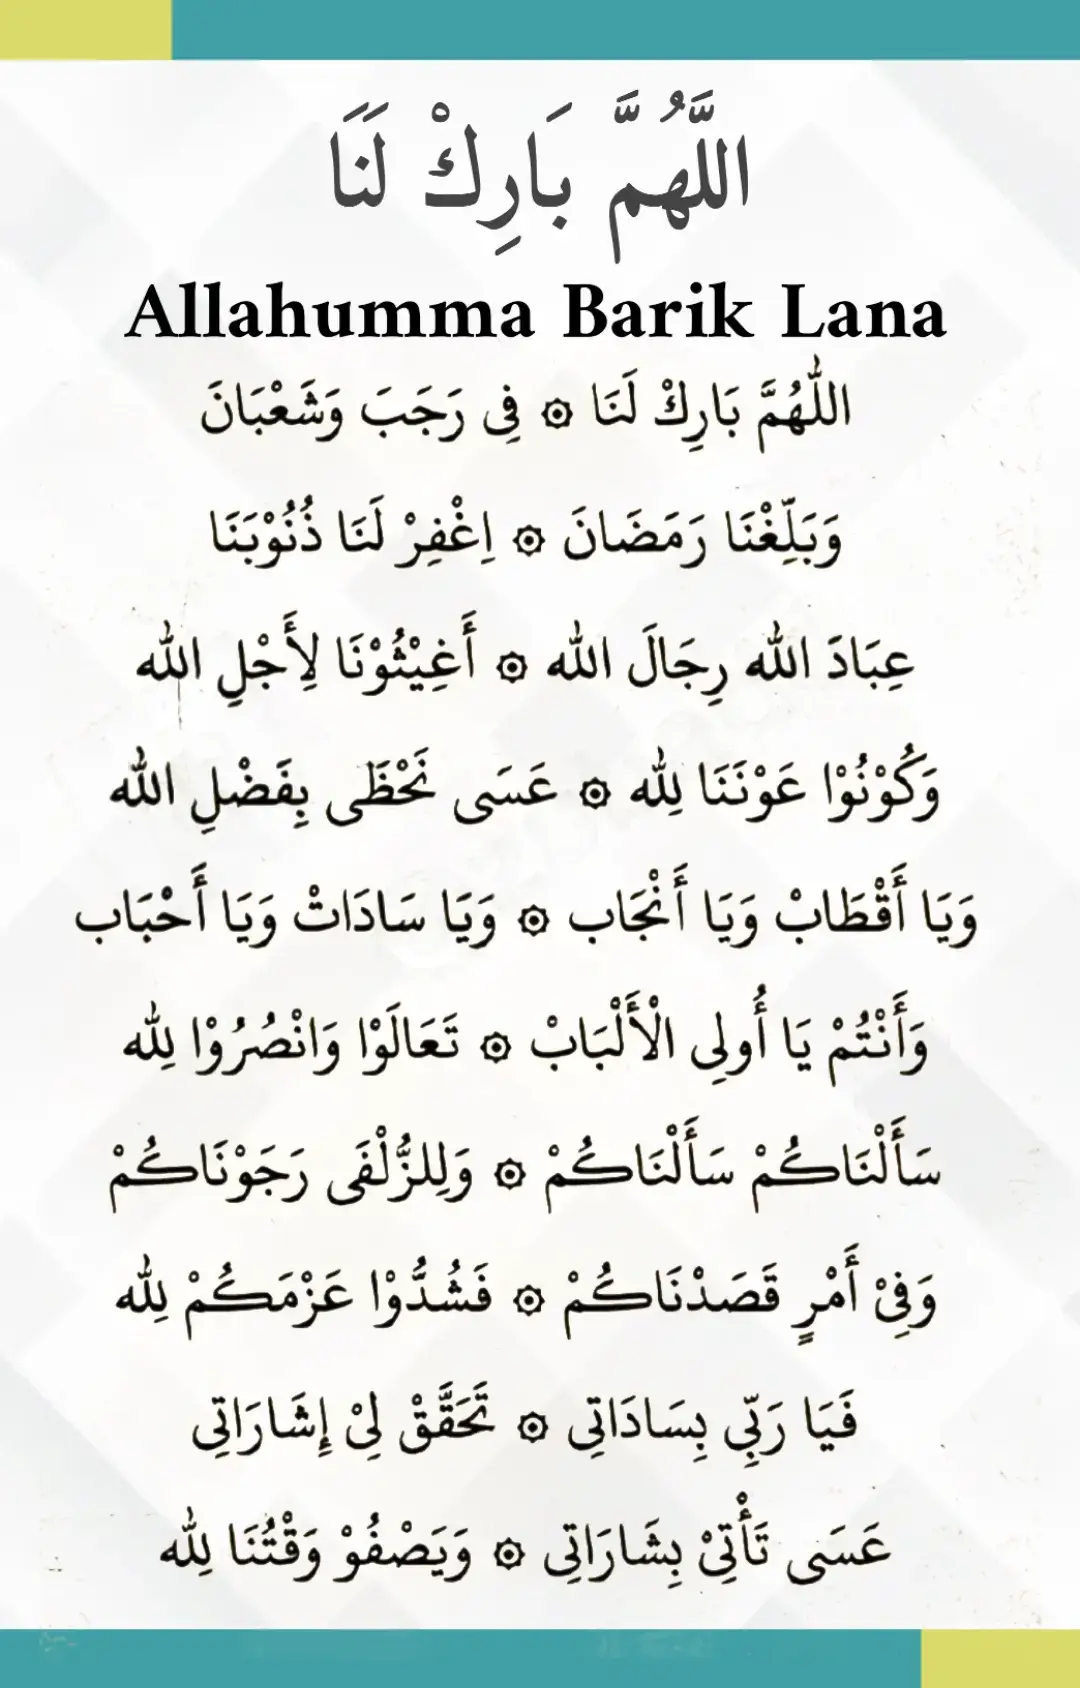 اللَّهُمَّ بَارِكْ لَنَا
Allahumma Barik Lana
اللّٰهُمَّ بَارِكْ لَنَا ۞ فِى رَجَبَ وَشَعْبَانَ
وَبَلِّغْنَا رَمَضَانَ ۞ اِغْفِرْ لَنَا ذُنُوْبَنَا
عِبَادَ اللّٰه رِجَالَ اللّٰه ۞ أَغِيْثُوْنَا لِأَجْلِ اللّٰه
وَكُوْنُوْا عَوْنَنَا لِلّٰه ۞ عَسَى نَحْظَى بِفَضْلِ اللّٰه
وَيَا أَقْطَابْ وَيَا أَنْجَاب ۞ وَيَا سَادَاتْ وَيَا أَحْبَاب
وَأَنْتُمْ يَا أُولِى الْأَلْبَابْ ۞ تَعَالَوْا وَانْصُرُوْا لِلّٰه
سَأَلْنَاكُمْ سَأَلْنَاكُمْ ۞ وَلِلزُّلْفَى رَجَوْنَاكُمْ
وَفِىْ أَمْرٍ قَصَدْنَاكُمْ ۞ فَشُدُّوْا عَزْمَكُمْ لِلّٰه
فَيَا رَبِّى بِسَادَاتِى ۞ تَحَقَّقْ لِىْ إِشَارَاتِى
عَسَى تَأْتِىْ بِشَارَاتِى ۞ وَيَصْفُوْ وَقْتُنَا لِلّٰه